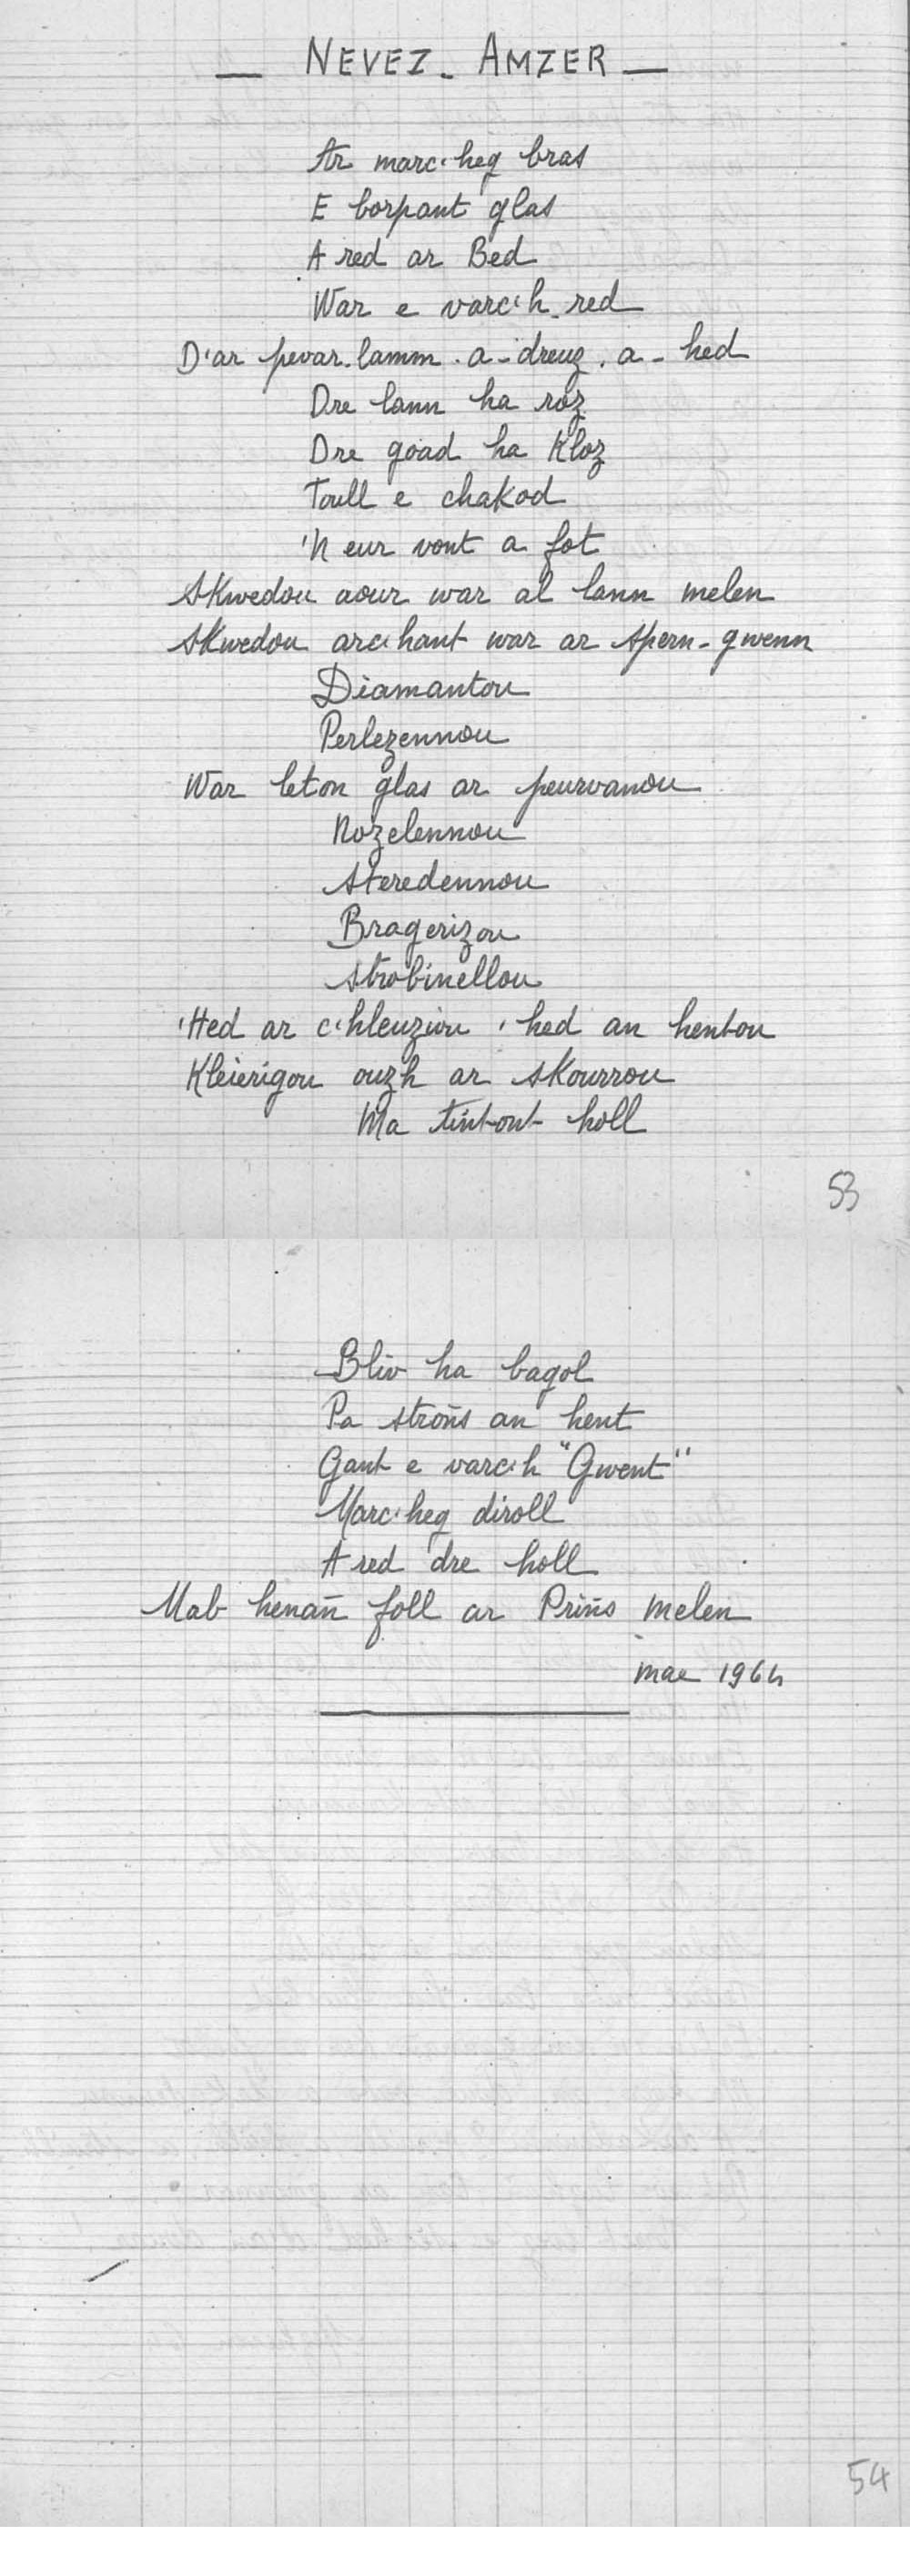 — NEVEZ - AMZER —
Ar marc'heg bras
E borpant glas
A red ar Bed
War e varc'h-red
D'ar pevar-lamm. a-dreuz. a-hed
Dre lann ha roz
Dre goad ha Kloz
Toull e chakod
'N eur vont a fot
Skwedou aour war al lann melen
Skwedou arc'hant war ar spern-gwenn
Diamantou
Perlezennou
War leton glas ar peurvanou
Nozelennou
Steredennou
Bragerizou
Strobinellou
'Hed ar c'hleuziou 'hed an hentou
Kleierigou ouzh ar skourrou
Ma tint-ont holl
53
Bliv ha bagol
Pa stroñs an hent
Gant e varc'h "Gwent"
Marc'heg diroll
A red dre holl
Mab henañ foll ar Priñs melen
mae 1964
54